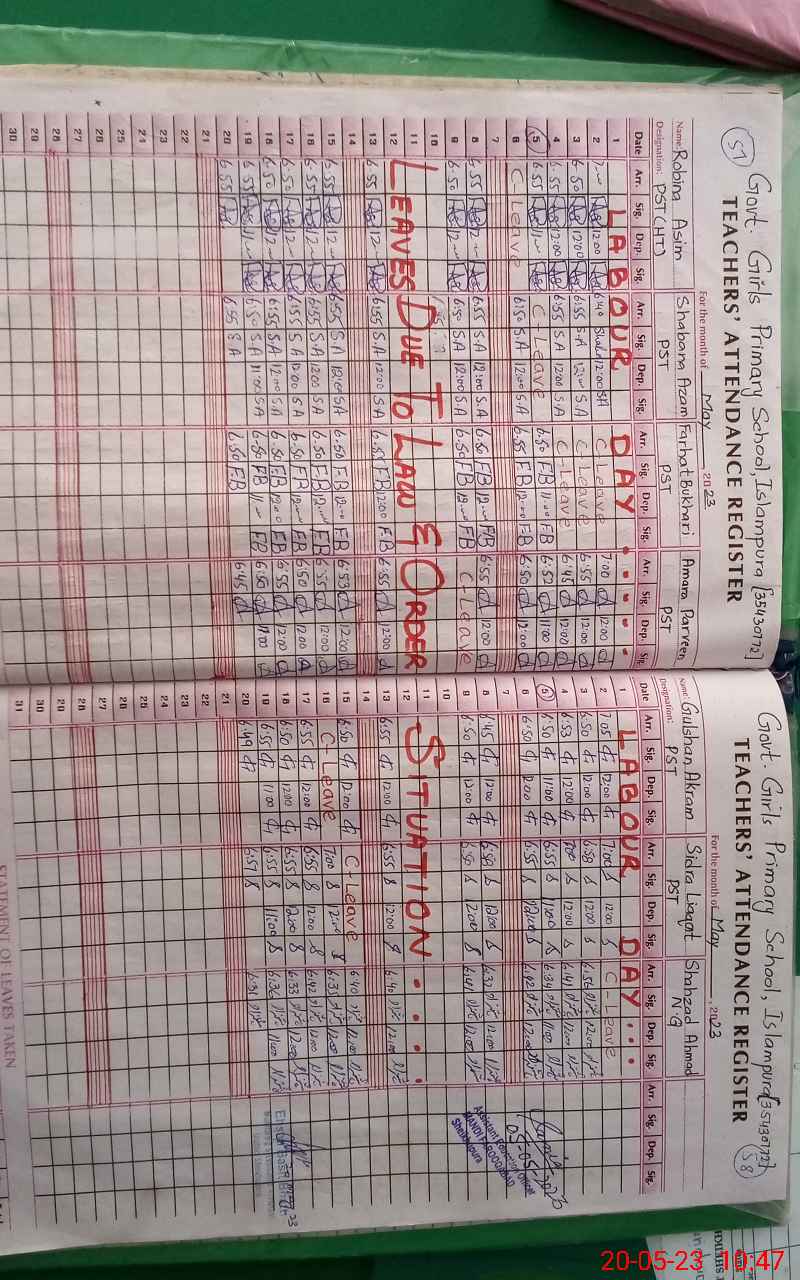 51
Govt. Girls Primary School, Islampura [35430172]
TEACHERS' ATTENDANCE REGISTER
For the month of May 2023
Name: Robina Asim Shabana Azam Farhat Bukhari Amara Parveen
Designation: PST (HT) PST PST PST
Date Arr. Sig. Dep. Sig. Arr. Sig. Dep. Sig. Arr. Sig. Dep. Sig. Arr. Sig. Dep. Sig.
1 LABOUR DAY....
2 12:00 6:40 12:00 S.A C-Leave 7:00 12:00
3 6:50 12:00 6:55 S.A 12:00 S.A C-Leave 6:55 12:00
4 6:55 12:00 6:55 S.A 12:00 S.A C-Leave 6:45 12:00
5 6:55 11:00 C-Leave 6:50 FB 11:00 FB 6:52 11:00
6 C-Leave 6:50 S.A 12:00 S.A 6:55 FB 12:00 FB 6:50 12:00
7
8 6:55 12 6:55 S.A 12:00 S.A 6:50 FB 12:00 FB 6:55 12:00
9 6:50 12 6:50 S.A 12:00 S.A 6:50 FB 12:00 FB C-Leave
10
11 LEAVES DUE TO LAW & ORDER
12
13 6:55 12 6:55 S.A 12:00 S.A 6:55 FB 12:00 FB 6:55 12:00
14
15 6:55 12 6:55 S.A 12:00 S.A 6:50 FB 12 FB 6:53 12:00
16 6:55 12 6:55 S.A 12:00 S.A 6:50 FB 12:00 FB 6:55 12:00
17 6:50 12 6:55 S.A 12:00 S.A 6:50 FB 12 FB 6:50 12:00
18 6:50 12 6:55 S.A 12:00 S.A 6:50 FB 12:00 FB 6:55 12:00
19 6:55 11 6:50 S.A 11:00 S.A 6:50 FB 11 FB 6:50 11:00
20 6:55 6:55 S A 6:50 FB 6:45
21
22
23
24
25
26
27
28
29
30
58
Govt. Girls Primary School, Islampura [35430172]
TEACHERS' ATTENDANCE REGISTER
For the month of May, 2023
Name: Gulshan Akram Sidra Liaqat Shahzad Ahmad
Designation: PST PST N.Q
Date Arr. Sig. Dep. Sig. Arr. Sig. Dep. Sig. Arr. Sig. Dep. Sig. Arr. Sig. Dep. Sig.
1 LABOUR DAY...
2 7:05 12:00 7:00 12:00 C-Leave
3 6:50 12:00 6:58 12:00 6:56 12:00
4 6:53 12:00 7:00 12:00 6:41 12:00
5 6:50 11:00 6:55 11:00 6:34 11:00
6 6:50 12:00 6:55 12:00 6:42 12:00
7
8 6:45 12:00 6:50 12:00 6:37 12:00
9 6:50 12:00 6:50 12:00 6:41 12:00
10
11 SITUATION....
12
13 6:55 12:00 6:55 12:00 6:40 12:00
14
15 6:50 12:00 C-Leave 6:40 12:00
16 C-Leave 7:00 12:00 6:35 12:00
17 6:55 12:00 6:55 12:00 6:42 12:00
18 6:50 12:00 6:55 12:00 6:33 12:00
19 6:55 11:00 6:55 11:00 6:36 11:00
20 6:49 6:57 6:31
21
22
23
24
25
26
27
28
29
30
31
Assistant Education Officer
MANDI FAROOQABAD
Sheikhupura
STATEMENT OF LEAVES TAKEN
20-05-23 10:47